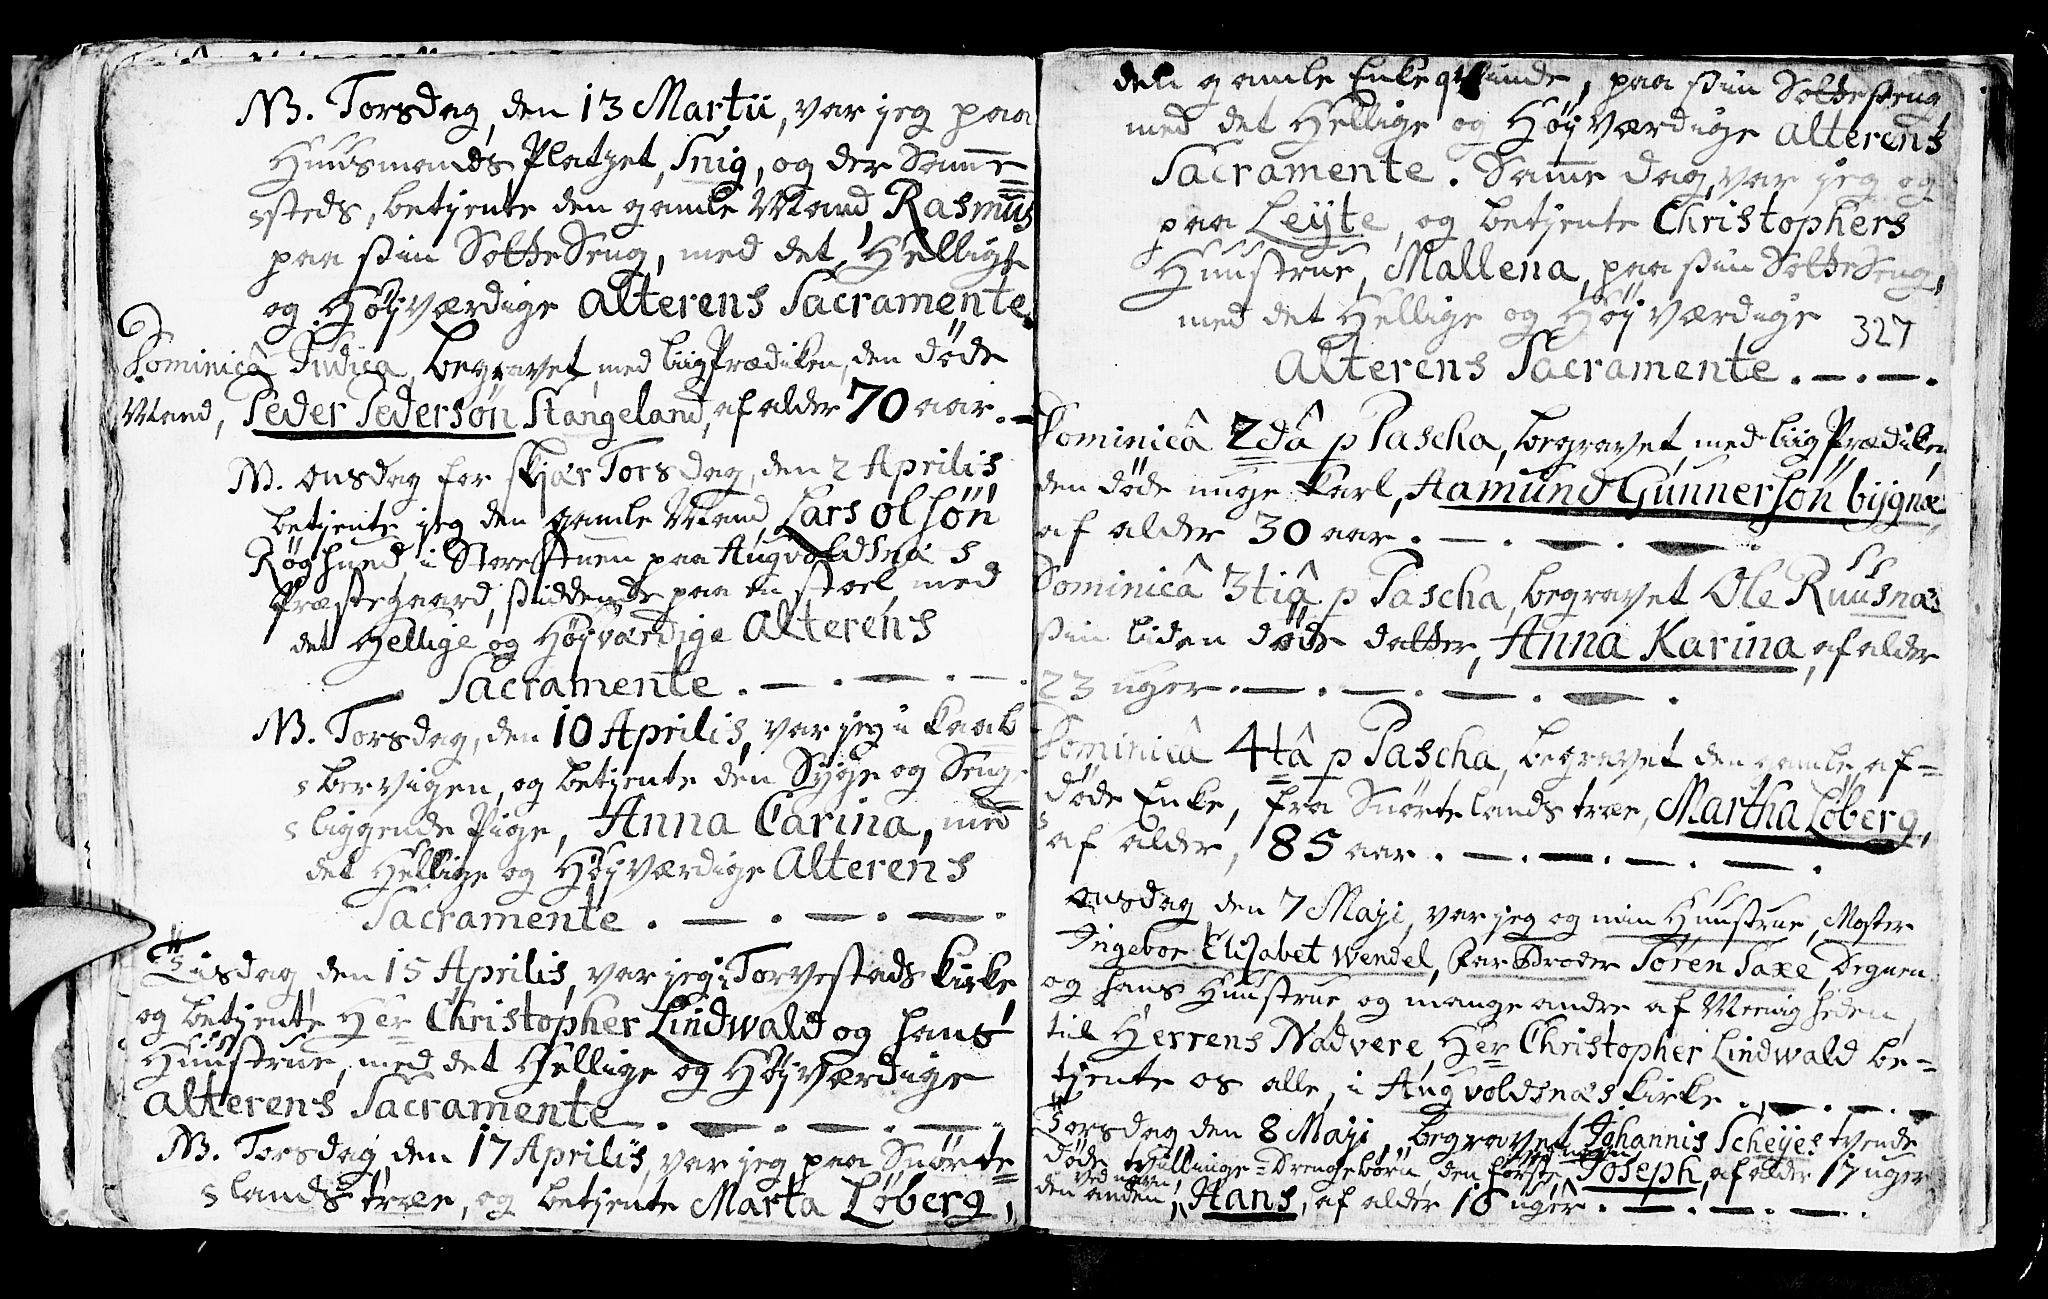 NB. Torsdag, den 13 Martii, var jeg paa
Huusmands Platzet, Snig, og der Samme=
steds, betjente den gamle Mand, Rasmus
paa sin SotteSeng, med det Hellige
og Højværdige Alterens Sacramente.
Dominicâ Judica, begravet, med liigPrædiken, den døde
Mand, Peder Pedersøn Stangeland, af alder 70 aar. —
NB. Onsdag for SkjærTorsdag, den 2 Aprilis
betjente jeg den gamle Mand, Lars Olsøn
Røghued i Storestuen paa Augvoldsnæs
Præstegaard, siddende paa en stoel, med
det Hellige og Højværdige Alterens
Sacramente. — . — . —
NB. Torsdag, den 10 Aprilis, var jeg i Kaab
bervigen, og betjente den Syge og Seng=
liggende Pige, Anna Carina, med
det Hellige og Højværdige Alterens
Sacramente. — . — . — .
Tiisdag, den 15 Aprilis, var jeg i Torvestads Kirke,
og betjente Her Christopher Lindwald og hans
Huustrue, med det Hellige og Højværdige
Alterens Sacramente. — . — . — .
NB. Torsdag, den 17 Aprilis, var jeg paa Snørte=
landstræe, og betjente Marta Løberg,
den gamle Enkeqvinde, paa sin Sotteseng
med det Hellige og Højværdige Alterens
Sacramente. Samme dag, var jeg og
paa Leyte, og betjente Christophers
Huustrue, Mallena, paa sin SotteSeng,
med det Hellige og Højværdige
327
Alterens Sacramente. — . — .
Dominicâ 2dâ p Pascha, begravet, med liigPrædiken,
den døde unge Karl, Aamund Gunnersøn bygnæs
af alder 30 aar. — . — . — .
Dominicâ 3tiâ p Pascha, begravet Ole Ruusnæs
sin liden døde datter, Anna Karina, af alder
23 uger. — . — . — . — .
Dominicâ 4tâ p Pascha, begravet den gamle, af=
døde Enke, fra Snørtelandstræe, Martha Løberg,
af alder, 85 aar. — . — . — . — .
Onsdag, den 7 Maji, var jeg og min Huustrue, Moster
Ingebor Elisabet Wendel, FarBroder Søren Saxe, Degnen
og hans Huustrue og mange andre af Meenigheden,
til Herrens Nadvere, Her Christopher Lindwald be=
tjente os alle, i Augvoldsnæs Kirke. — . — . —
Torsdag, den 8 Maji, begravet Johannis Scheyes tvende
døde tvillinge=Drengebørn, den første, ved navn, Joseph, af alder 17 uger
den anden, ved navn, Hans, af alder 18 uger. — . — . — .